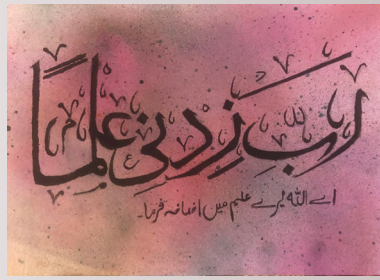 رَبِّ زِدْنِي عِلْمًا
اے اللہ میرے علم میں اضافہ فرما۔